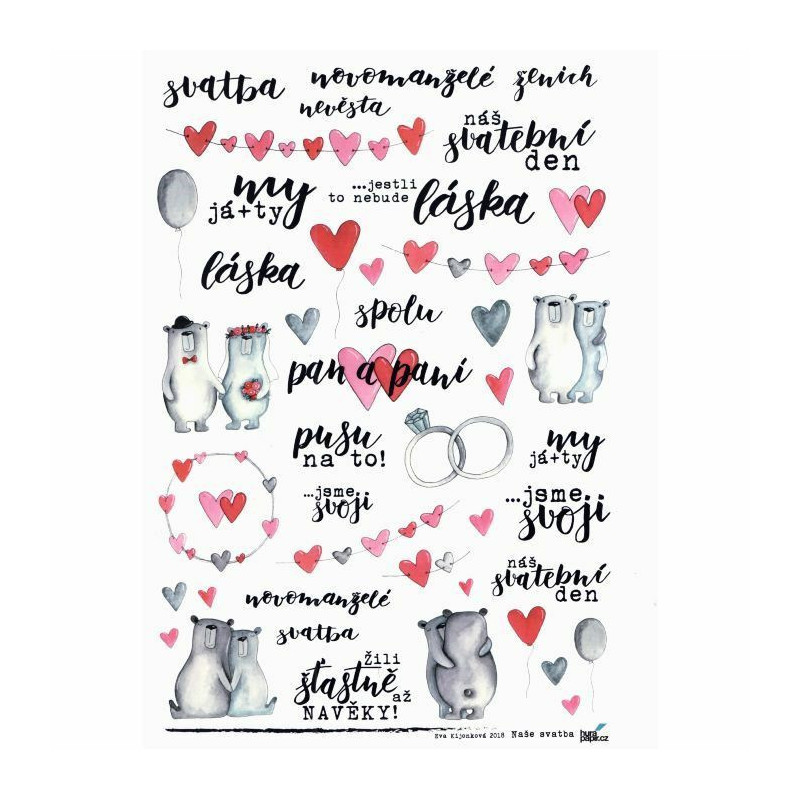 svatba novomanželé ženich
nevěsta
náš
svatební
den
my
já+ty
...jestli
to nebude
láska
láska
spolu
pan a paní
pusu
na to!
my
já+ty
...jsme
svoji
...jsme
svoji
náš
svatební
den
novomanželé
svatba
Žili
šťastně
až
NAVĚKY!
Eva Kijonková 2018 Naše svatba
hurá
papír.cz